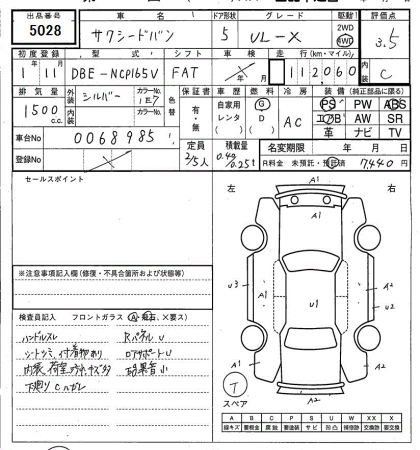 出品番号 車名 ドア形状 グレード 駆動 評価点
5028 サクシードバン 5 UL-X 2WD 4WD 3.5
初度登録 型式 シフト 車検 走行(km・マイル) 内装
1年11月 DBE-NCP165V FAT 112060 C
排気量 外装 カラーNo. 色替 保証書 車歴 燃料 冷房 装備(純正品に限る)
1500cc シルバー 1E7 有・無 自家用 G AC PS PW ABS
内装 カラーNo. レンタ D エアB AW SR
( ) ( ) 革 ナビ TV
車台No 0068985 定員 積載量 名変期限 年 月 日
登録No 2/5人 0.4t 0.25t R料金 未預託・預託済 7,440円
セールスポイント
左 右
A1
A1
※注意事項記入欄(修復・不具合箇所および状態等)
U3 A1 U1 A2 A2 U2
検査員記入 フロントガラス(A・飛石、X要ス)
ハンドルスレ Rパネル U
シートシミ、付着物有り ロアサポートU
下廻り C ハガレ
A1 A2
T
スペア A2
A B C P S U W X XX X
線キズ